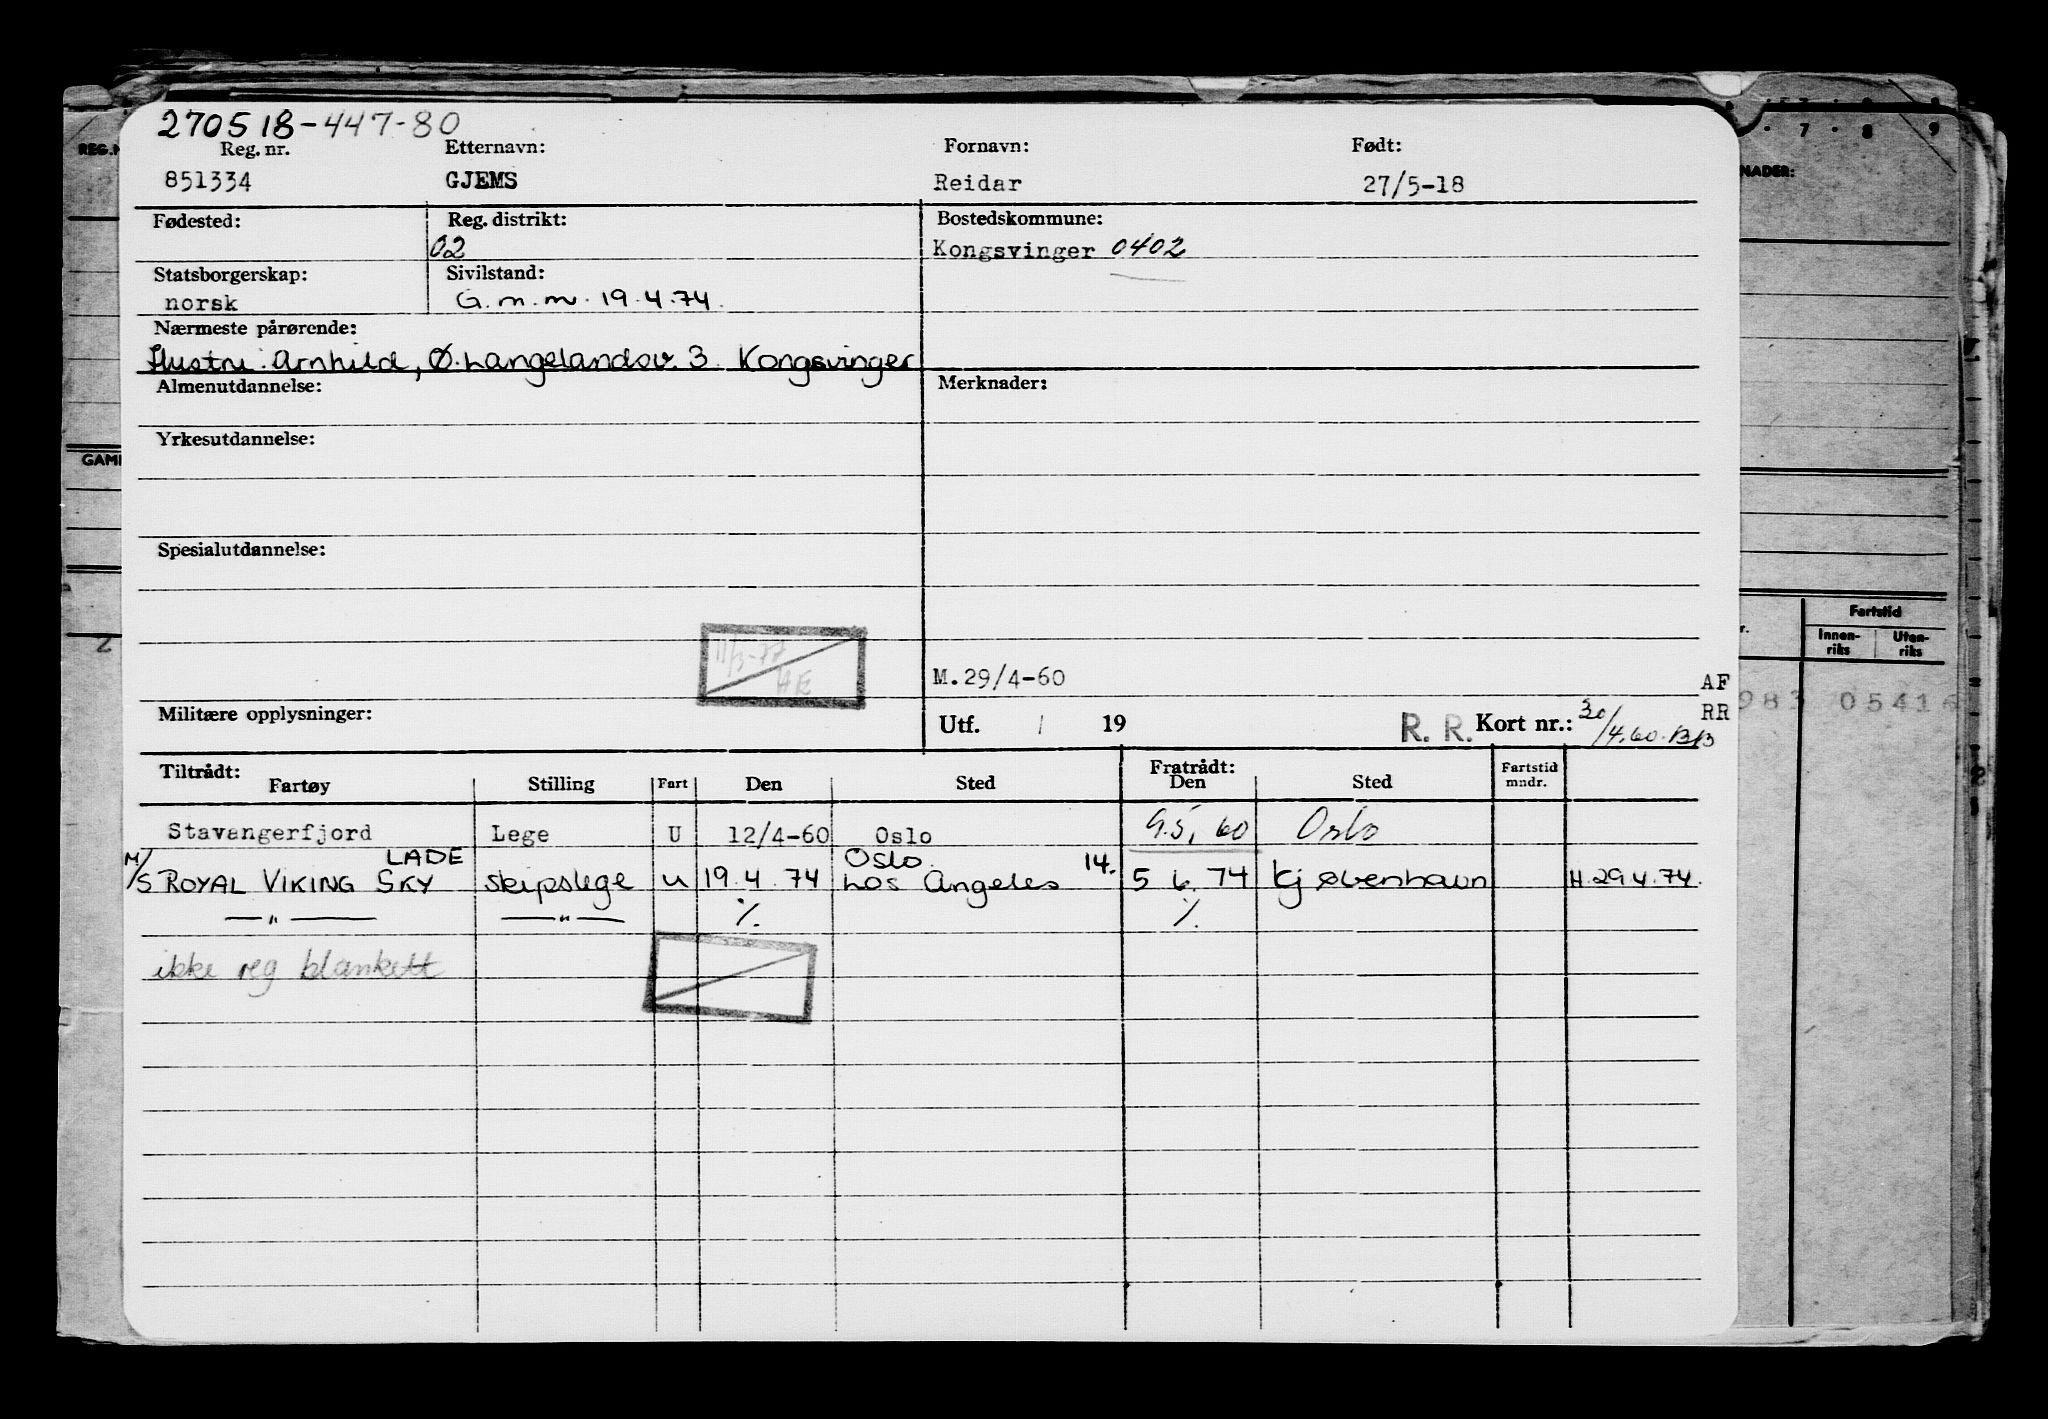 270518-447-80
Reg. nr. Etternavn: Fornavn: Født:
851334 GJEMS Reidar 27/5-18
Fødested: Reg. distrikt: Bostedskommune:
02 Kongsvinger 0402
Statsborgerskap: Sivilstand:
norsk G.m.m. 19.4.74.
Nærmeste pårørende:
Hustru: Arnhild, Ø. Langelandsv. 3. Kongsvinger
Almenutdannelse: Merknader:
Yrkesutdannelse:
Spesialutdannelse:
11/3-77
HE
M.29/4-60
AF
RR
Militære opplysninger: Utf. / 19 R. R. Kort nr.: 30/4.60.
Tiltrådt: Fratrådt:
Fartøy Stilling Fart Den Sted Den Sted Fartstid mndr.
Stavangerfjord Lege U 12/4-60 Oslo 9.5.60 Oslo
LADE Oslo 14.
M/S ROYAL VIKING SKY skipslege u 19.4.74 Los Angeles 5 6.74 Kjøbenhavn H.29.4.74.
—"— —"— ⁒ ⁒
ikke reg blankett
REG.N
GAML
2
7 · 8 9
NADER:
r.
Fartstid
Innen-
riks
Uten-
riks
983 05416